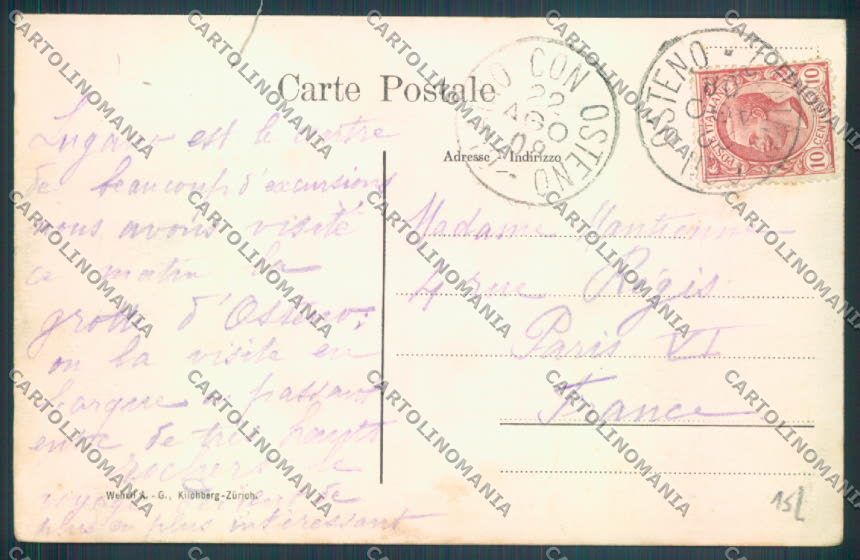 Carte Postale
Adresse - Indirizzo
CON OSTENO
22
AGO
08
OSTENO
POSTE ITALIANE
10 CENT. 10
Lugano est le centre
de beaucoup d'excursions
nous avons visité
ce matin la
grotte d'Osteno,
on la visite en
barque en passant
entre de très hauts
rochers le
voyage
plus en plus intéressant
Madame
4 rue Régis
Paris VI
France
Wehrli A.-G., Kilchberg-Zürich.
15L
CARTOLINOMANIA